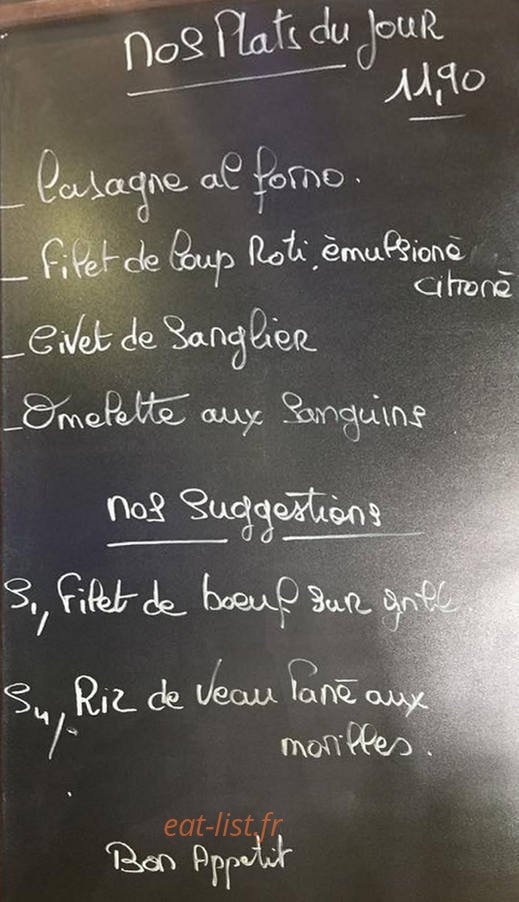 Nos Plats du Jour
11,90
_ Lasagne al forno.
_ Filet de loup Roti, èmulsionè
citronē
_ Civet de Sanglier
_ Omelette aux Sanguins
Nos Suggestions
S1, Filet de boeuf sur grill.
S4, Riz de Veau Panē aux
morilles.
eat-list.fr
Bon Appetit